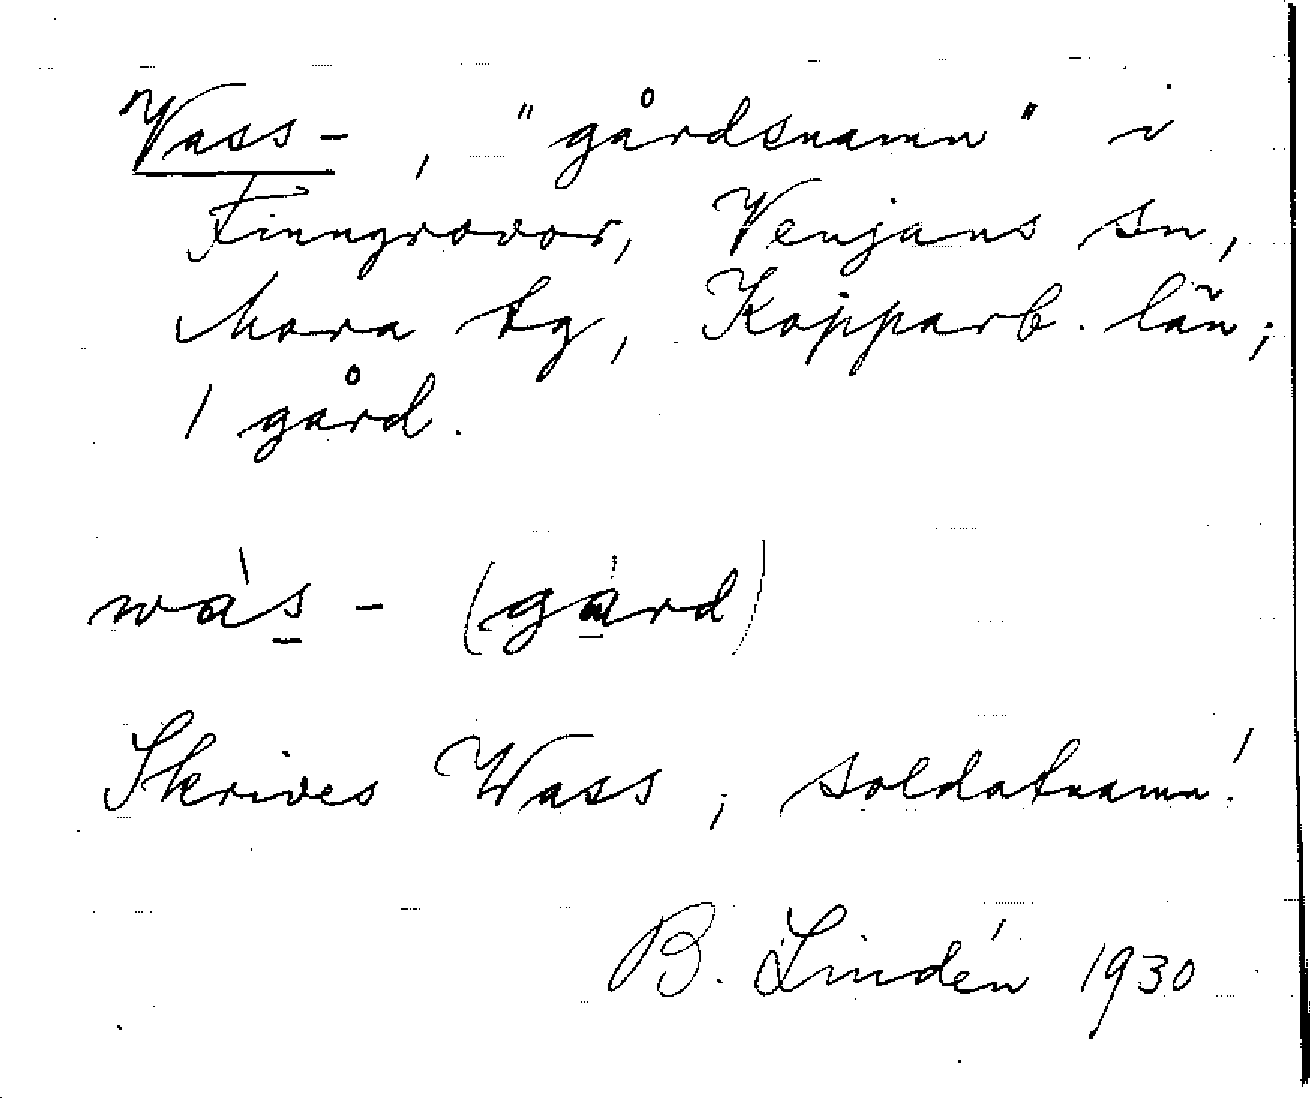 Vass-, "gårdsnamn" i
Finngrovor, Venjans sn,
Mora tg, Kopparb. län;
1 gård.
wàs - (gård)
Skrives Wass; soldatnamn!
B. Lindén 1930